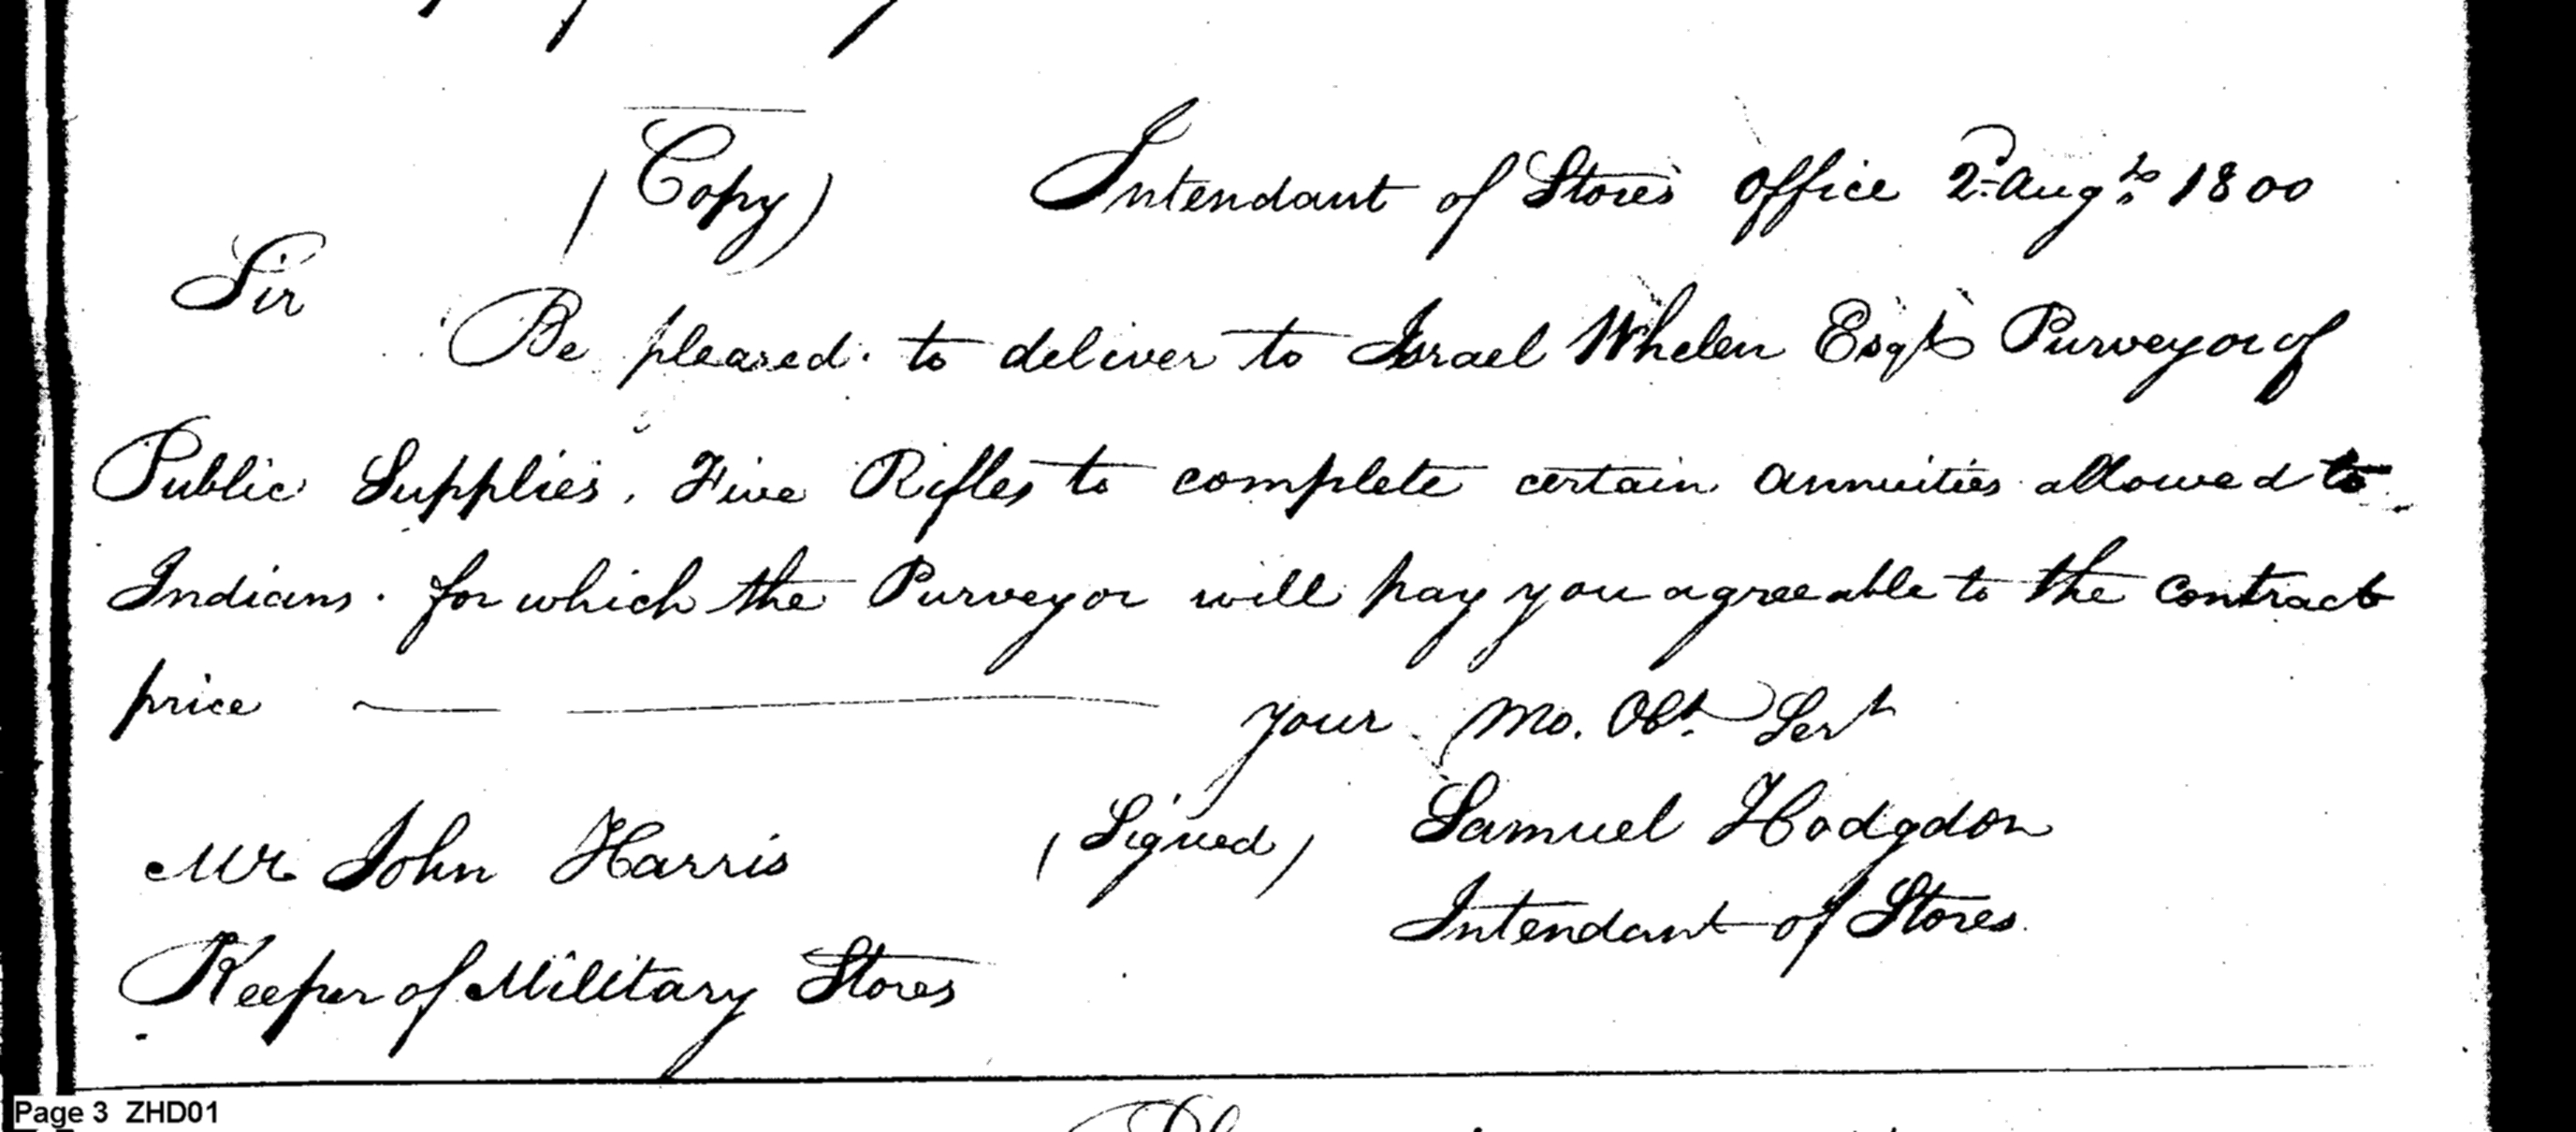 (Copy) Intendant of Stores office 2d. Augt. 1800
Sir
Be pleased to deliver to Israel Whelen Esqr Purveyor of
Public Supplies, Five Rifles to complete certain annuities allowed to
Indians. for which the Purveyor will pay you agreeable to the contract
price your mo. Obt. Servt
Mr John Harris (Signed) Samuel Hodgdon
Keeper of Military Stores Intendant of Stores
Page 3 ZHD01